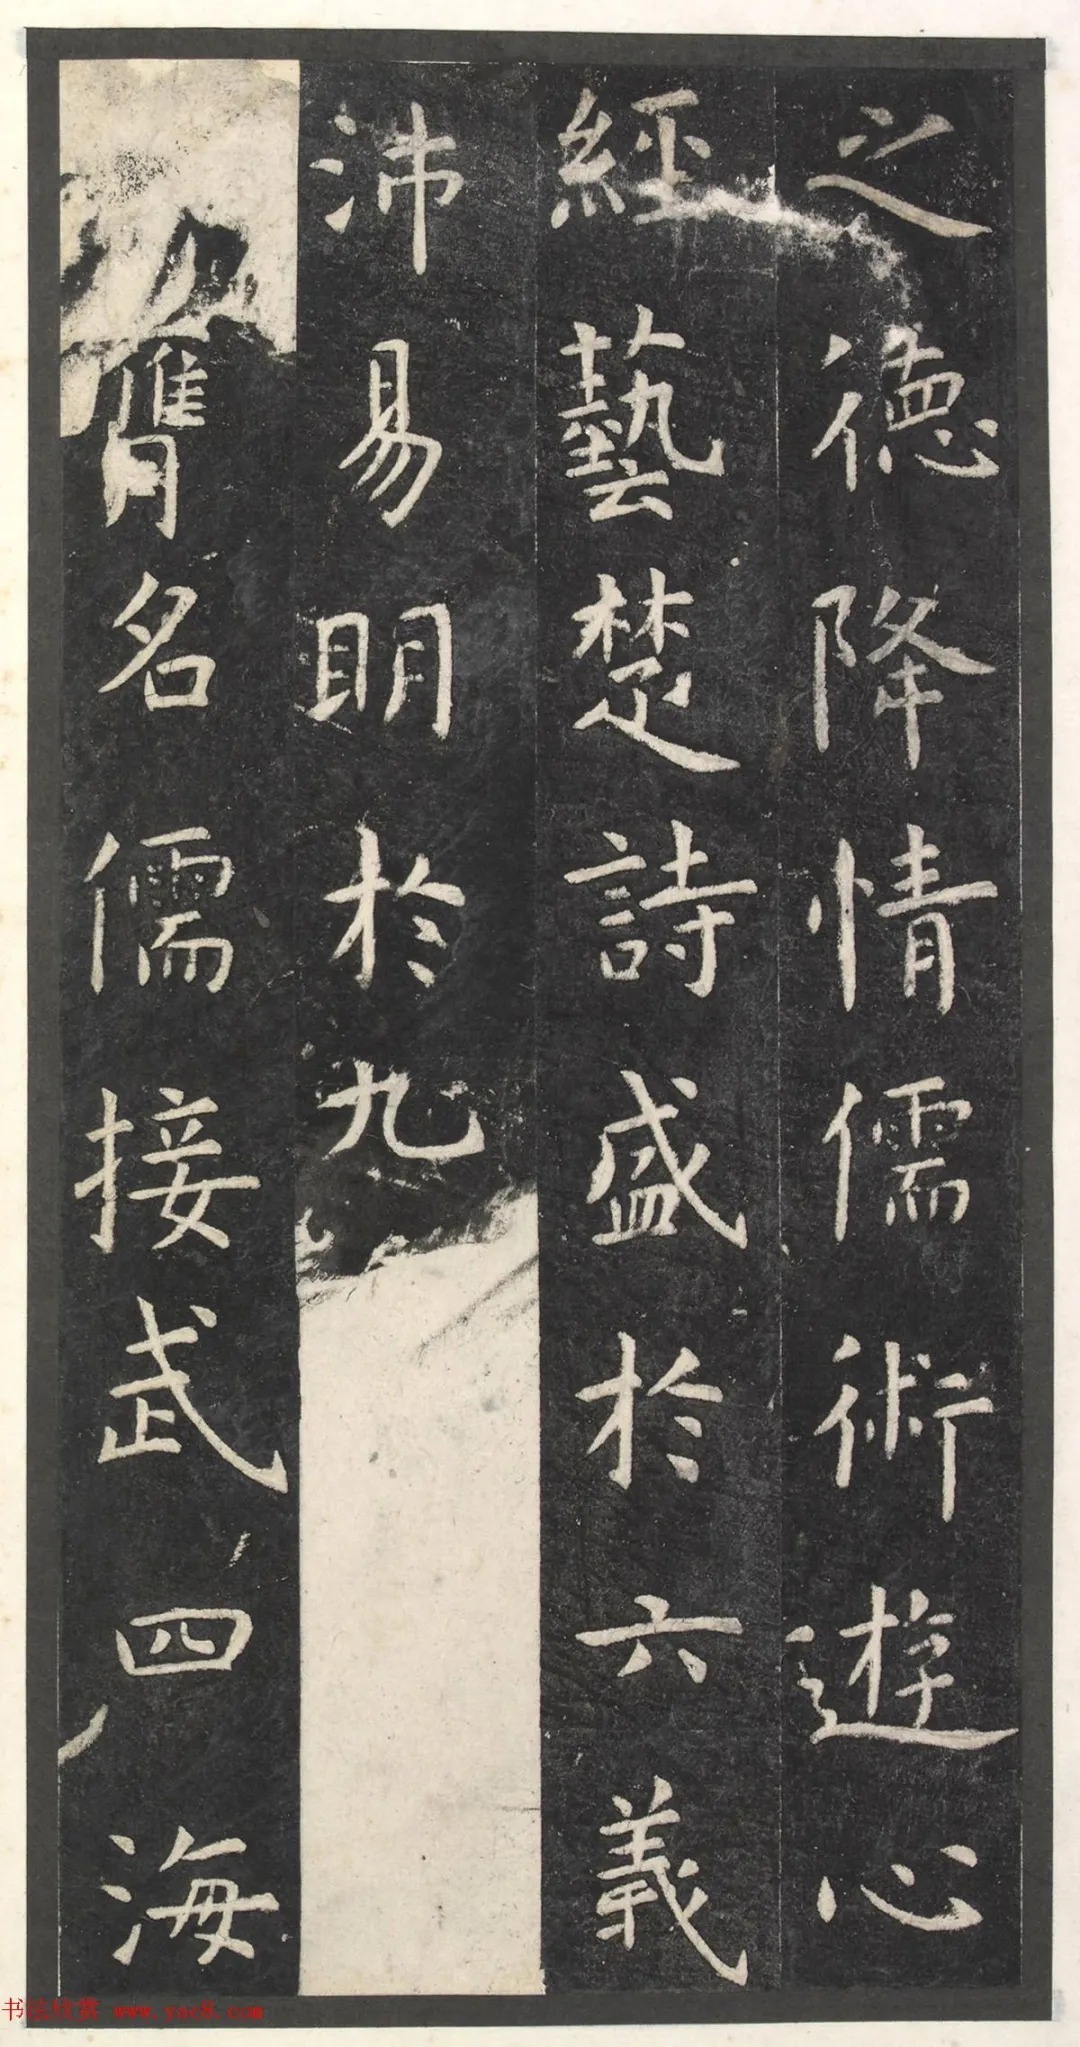 之德降情儒術遊心
經藝楚詩盛於六義
沛易明於九
膺名儒接武四海
书法欣赏 www.yac8.com